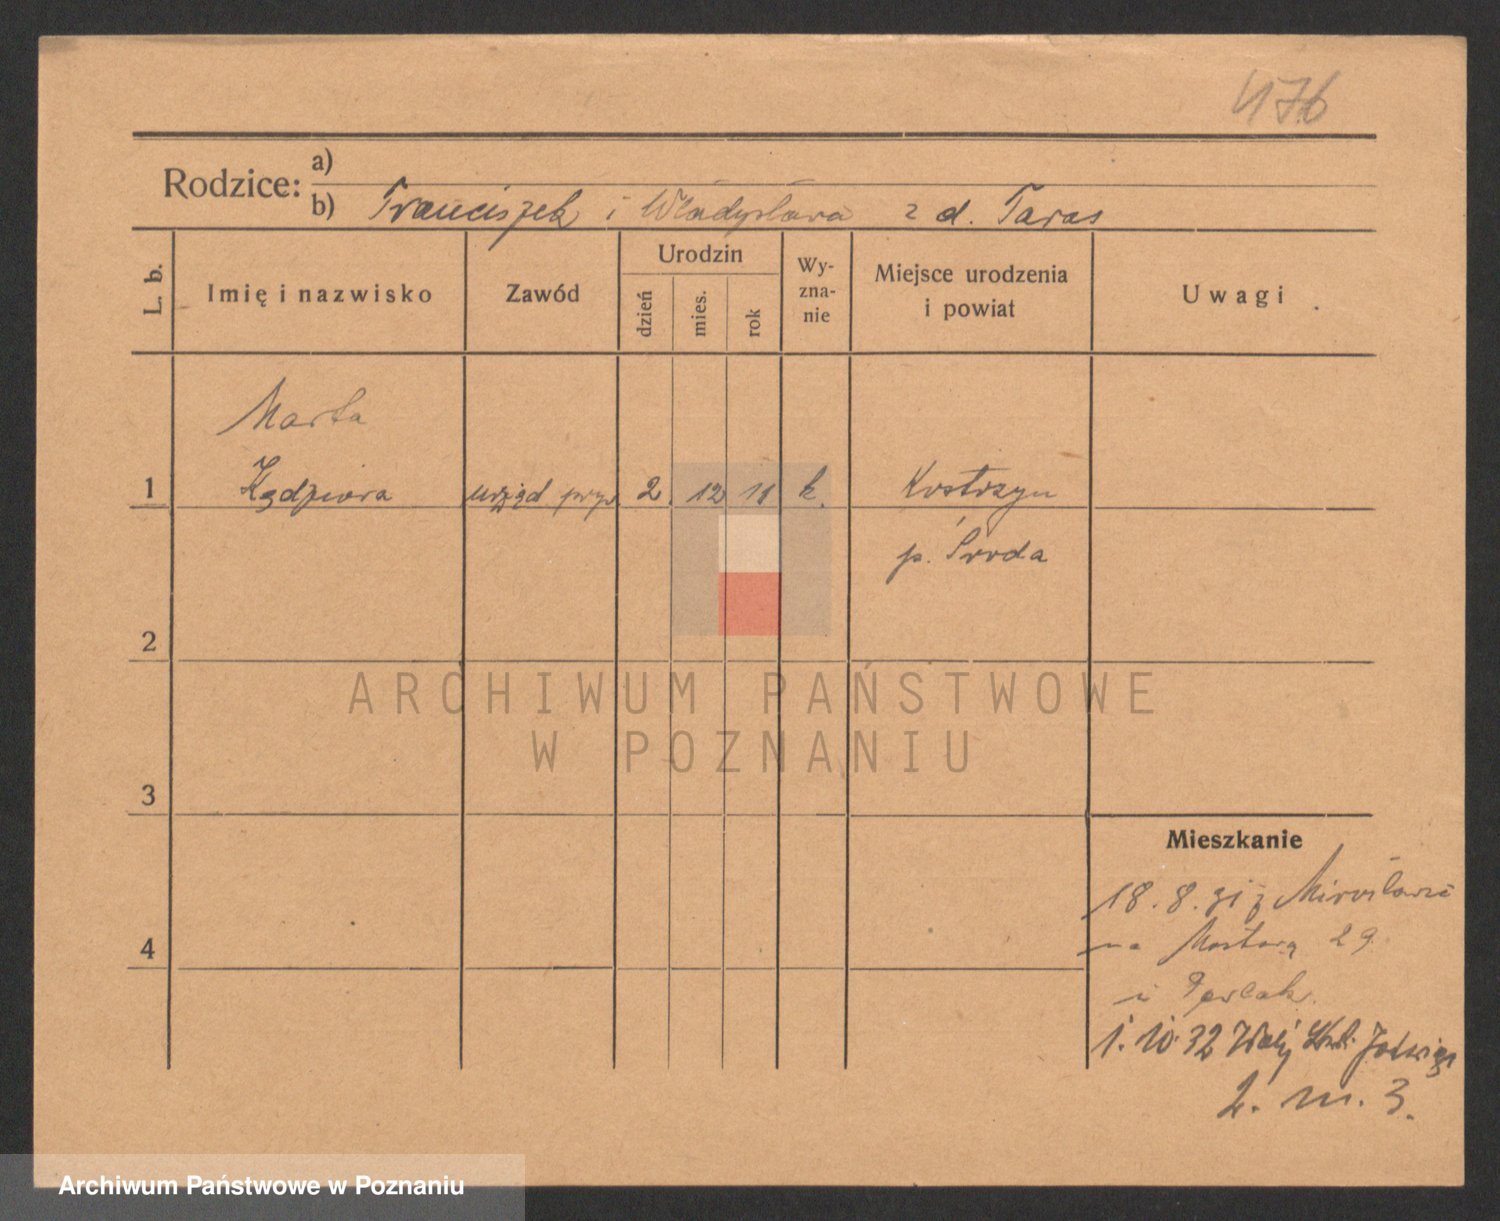 476
Rodzice: a)
b) Franciszek i Władysława z d. Taras
L. b.
Imię i nazwisko
Zawód
Urodzin
dzień
mies.
rok
Wy-
zna-
nie
Miejsce urodzenia
i powiat
Uwagi
Marta
1 Kądziora urząd pryw 2 12 11 k. Kostrzyn
p. Środa
2
3
4
Mieszkanie
18. 8. 31 z Mirosławia
na 29
u
1. 10 32 Król. Jadwigi
2. m. 3.
ARCHIWUM PAŃSTWOWE
W POZNANIU
Archiwum Państwowe w Poznaniu